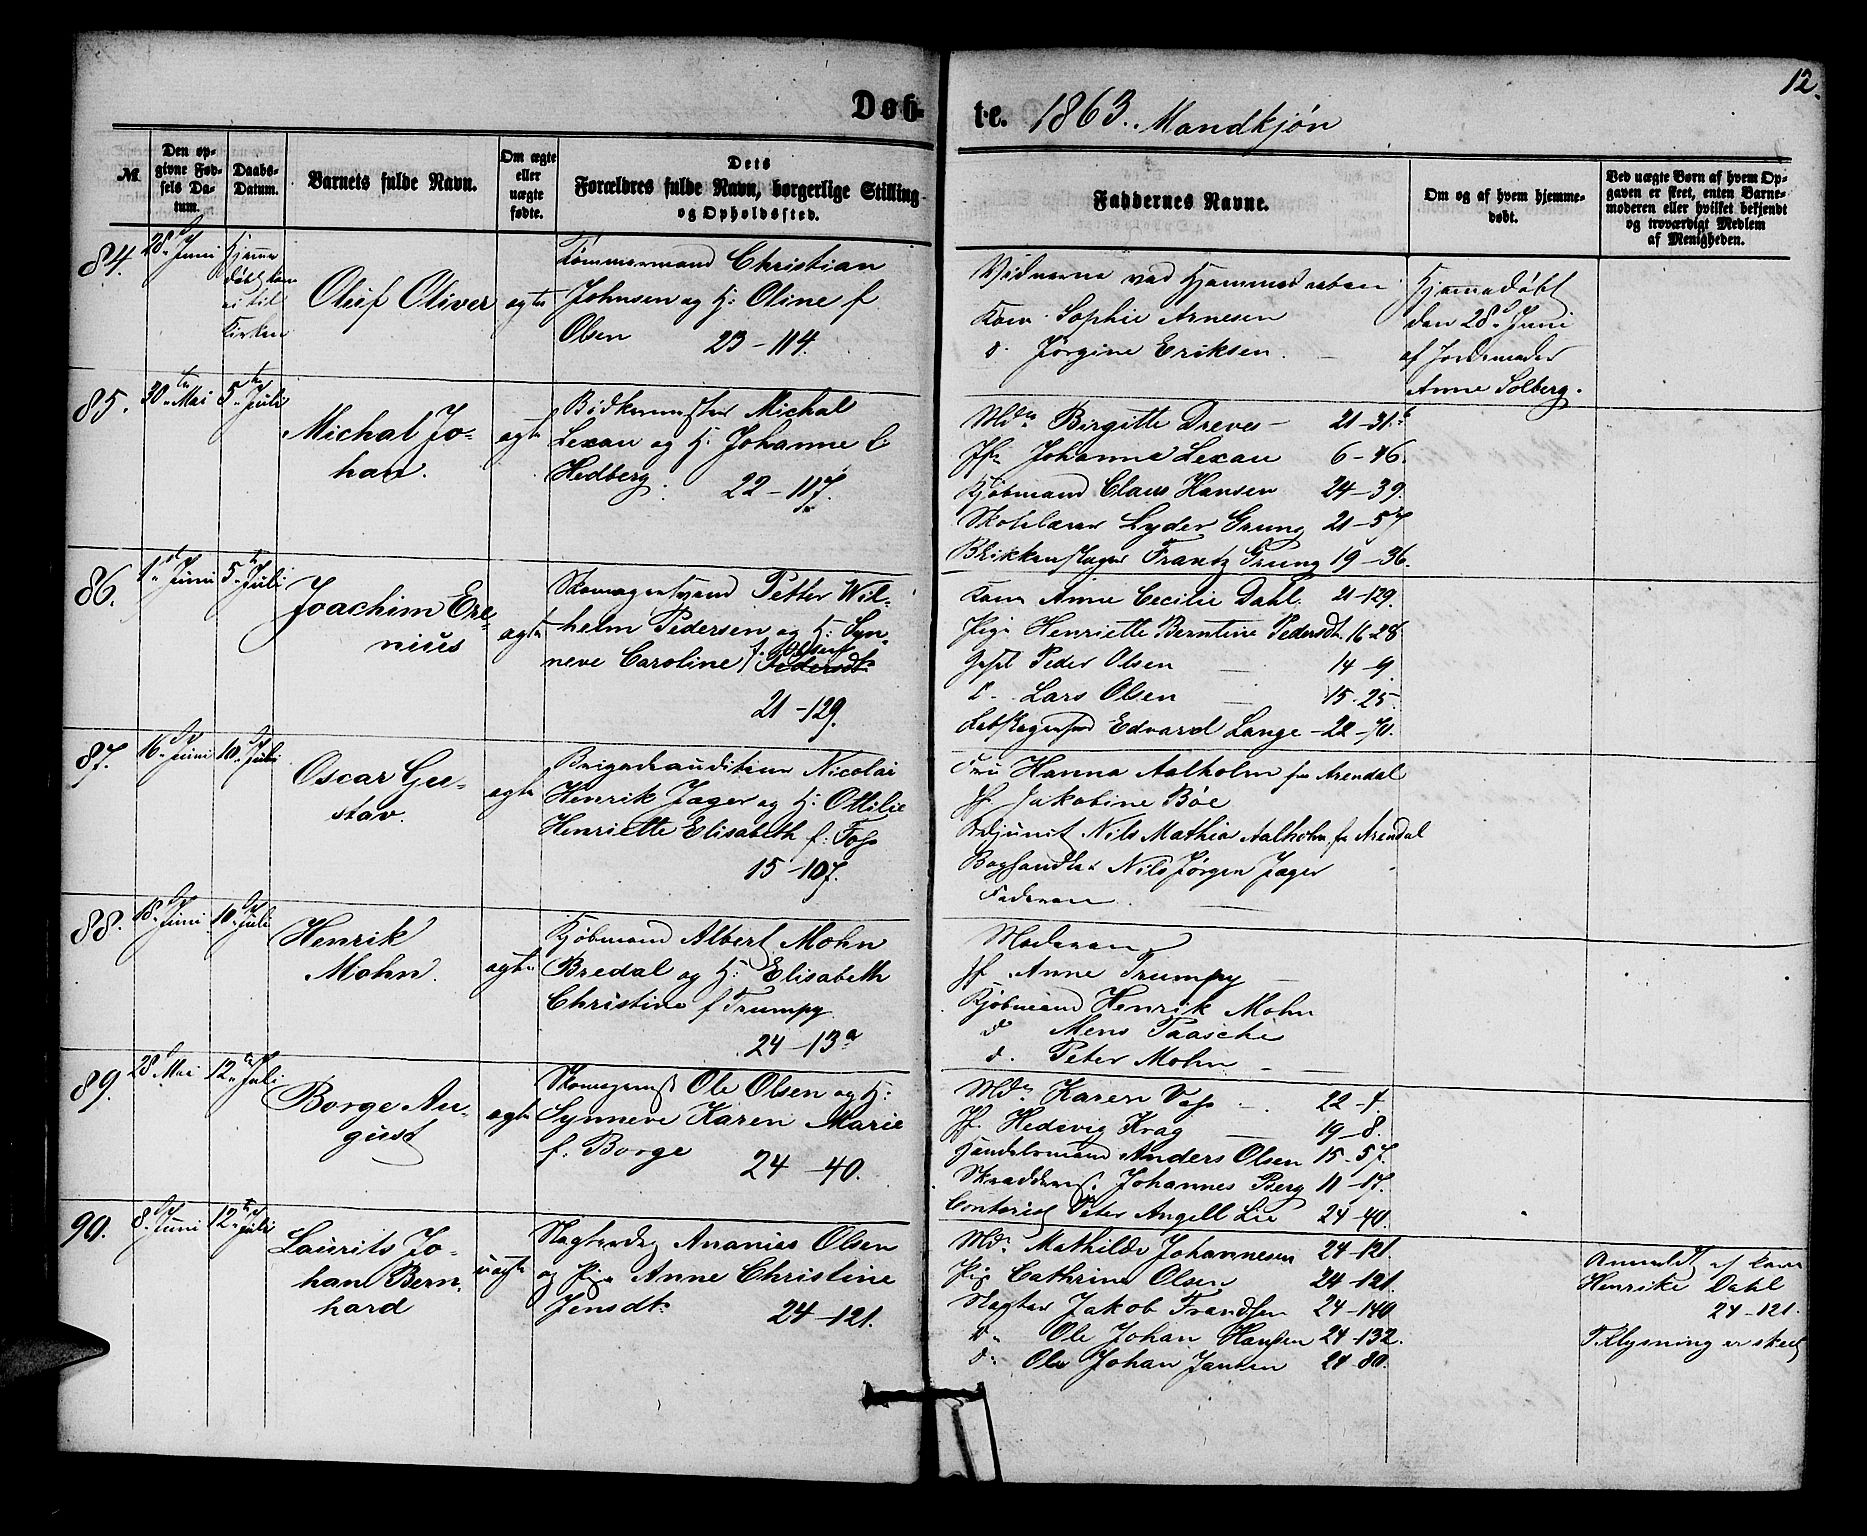 12.
Døb-
te. 1863. Mandkjøn
№
Den op-
givne Fød-
sels Da-
tum.
Daabs-
Datum.
Barnets fulde Navn.
Om ægte
eller
uægte
fødte.
Dets
Forældres fulde Navn, borgerlige Stilling
og Opholdssted.
Faddernes Navne.
Om og af hvem hjemme-
døbt.
Ved uægte Børn af hvem Op-
gaven er skeet, enten Barne-
moderen eller hvilket bekjendt
og troværdigt Medlem
af Menigheden.
84.
28de Juni
Hjemme
døbt, kom
ei til
Kirken
Oluf Oliver
ægte
Tømmermand Christian
Johnsen og H: Oline f
Olsen 23-114.
Vidnerne ved Hjemmedaaben
Kone Sophie Arnesen
d. Jørgine Eriksen.
Hjemmedøbt
den 28de Juni
af Jordemoder
Anne Solberg.
85.
30te Mai
5te Juli
Michal Jo-
han.
ægte
Bødkermester Michal
Lexau og H: Johanne f:
Hedberg. 22-117.
Mdm Birgitte Dreves- 21-31.b
Jfr Johanna Lexau 6-46.
Kjøbmand Claus Hansen 24-39.
Skolelærer Lyder Grung 21-57
Blikkenslager Frantz Grung 19-36.
86.
1ste Juni
5te Juli
Joachim Ere-
nius
ægte
Skomagersvend Petter Wil-
helm Pedersen og H: Syn-
neve Caroline f. Olsen Pedersdt.
21-129.
Kone Anne Cecilie Dahl. 21-129.
Pige Henriette Berntine Pedersdt. 16-28
Peder Olsen 14-9.
d. Lars Olsen 15-25.
Edvard Lange-22-70.
87.
16de Juni
10de Juli
Oscar Gu-
stav.
ægte
Brigadeauditeur Nicolai
Henrik Jæger og H: Ottilie
Henriette Elisabeth f: Foss
15-107.
Fru Hanna Aalholm fra Arendal
Jf. Jakobine Bøe
Adjunct Nils Mathia Aalholm fra Arendal
Boghandler Nils Jørgen Jæger
Faderen
88.
18de Juni
10de Juli
Henrik
Mohn.
ægte
Kjøbmand Albert Mohn
Bredal og H: Elisabeth
Christine f Trumpy.
24-13a
Moderen
Jf. Anne Trumpy
Kjøbmand Henrik Mohn
d Mens Paasche
d. Peter Mohn
89.
28de Mai
12te Juli
Borge Au-
gust
ægte
Skomagermst Ole Olsen og H:
Synneve Karen Marie
f. Borge 24-40.
Mdm Karen Vos 22-7.
Jf. Hedevig Krag 19-8.
Handelsmand Anders Olsen 15-57.
Skrædderms. Johannes Berg 11-17.
Contorist Peter Angell Lie 24-40.
90.
8de Juni
12te Juli
Laurits Jo-
han Bern-
hard
uægte
Slagterdrg Ananias Olsen
og Pige Anne Christine
Jensdt. 24-121.
Md. Mathilde Johannesen 24-121.
Pige Cathrine Olsen 24-121.
Slagter Jakob Frandsen 24-140
d. Ole Johan Hansen 24-132.
d. Ole Johan Jansen 24-80.
Anmeldt af Kone
Henrike Dahl
24-121.
Tillysning er skeet